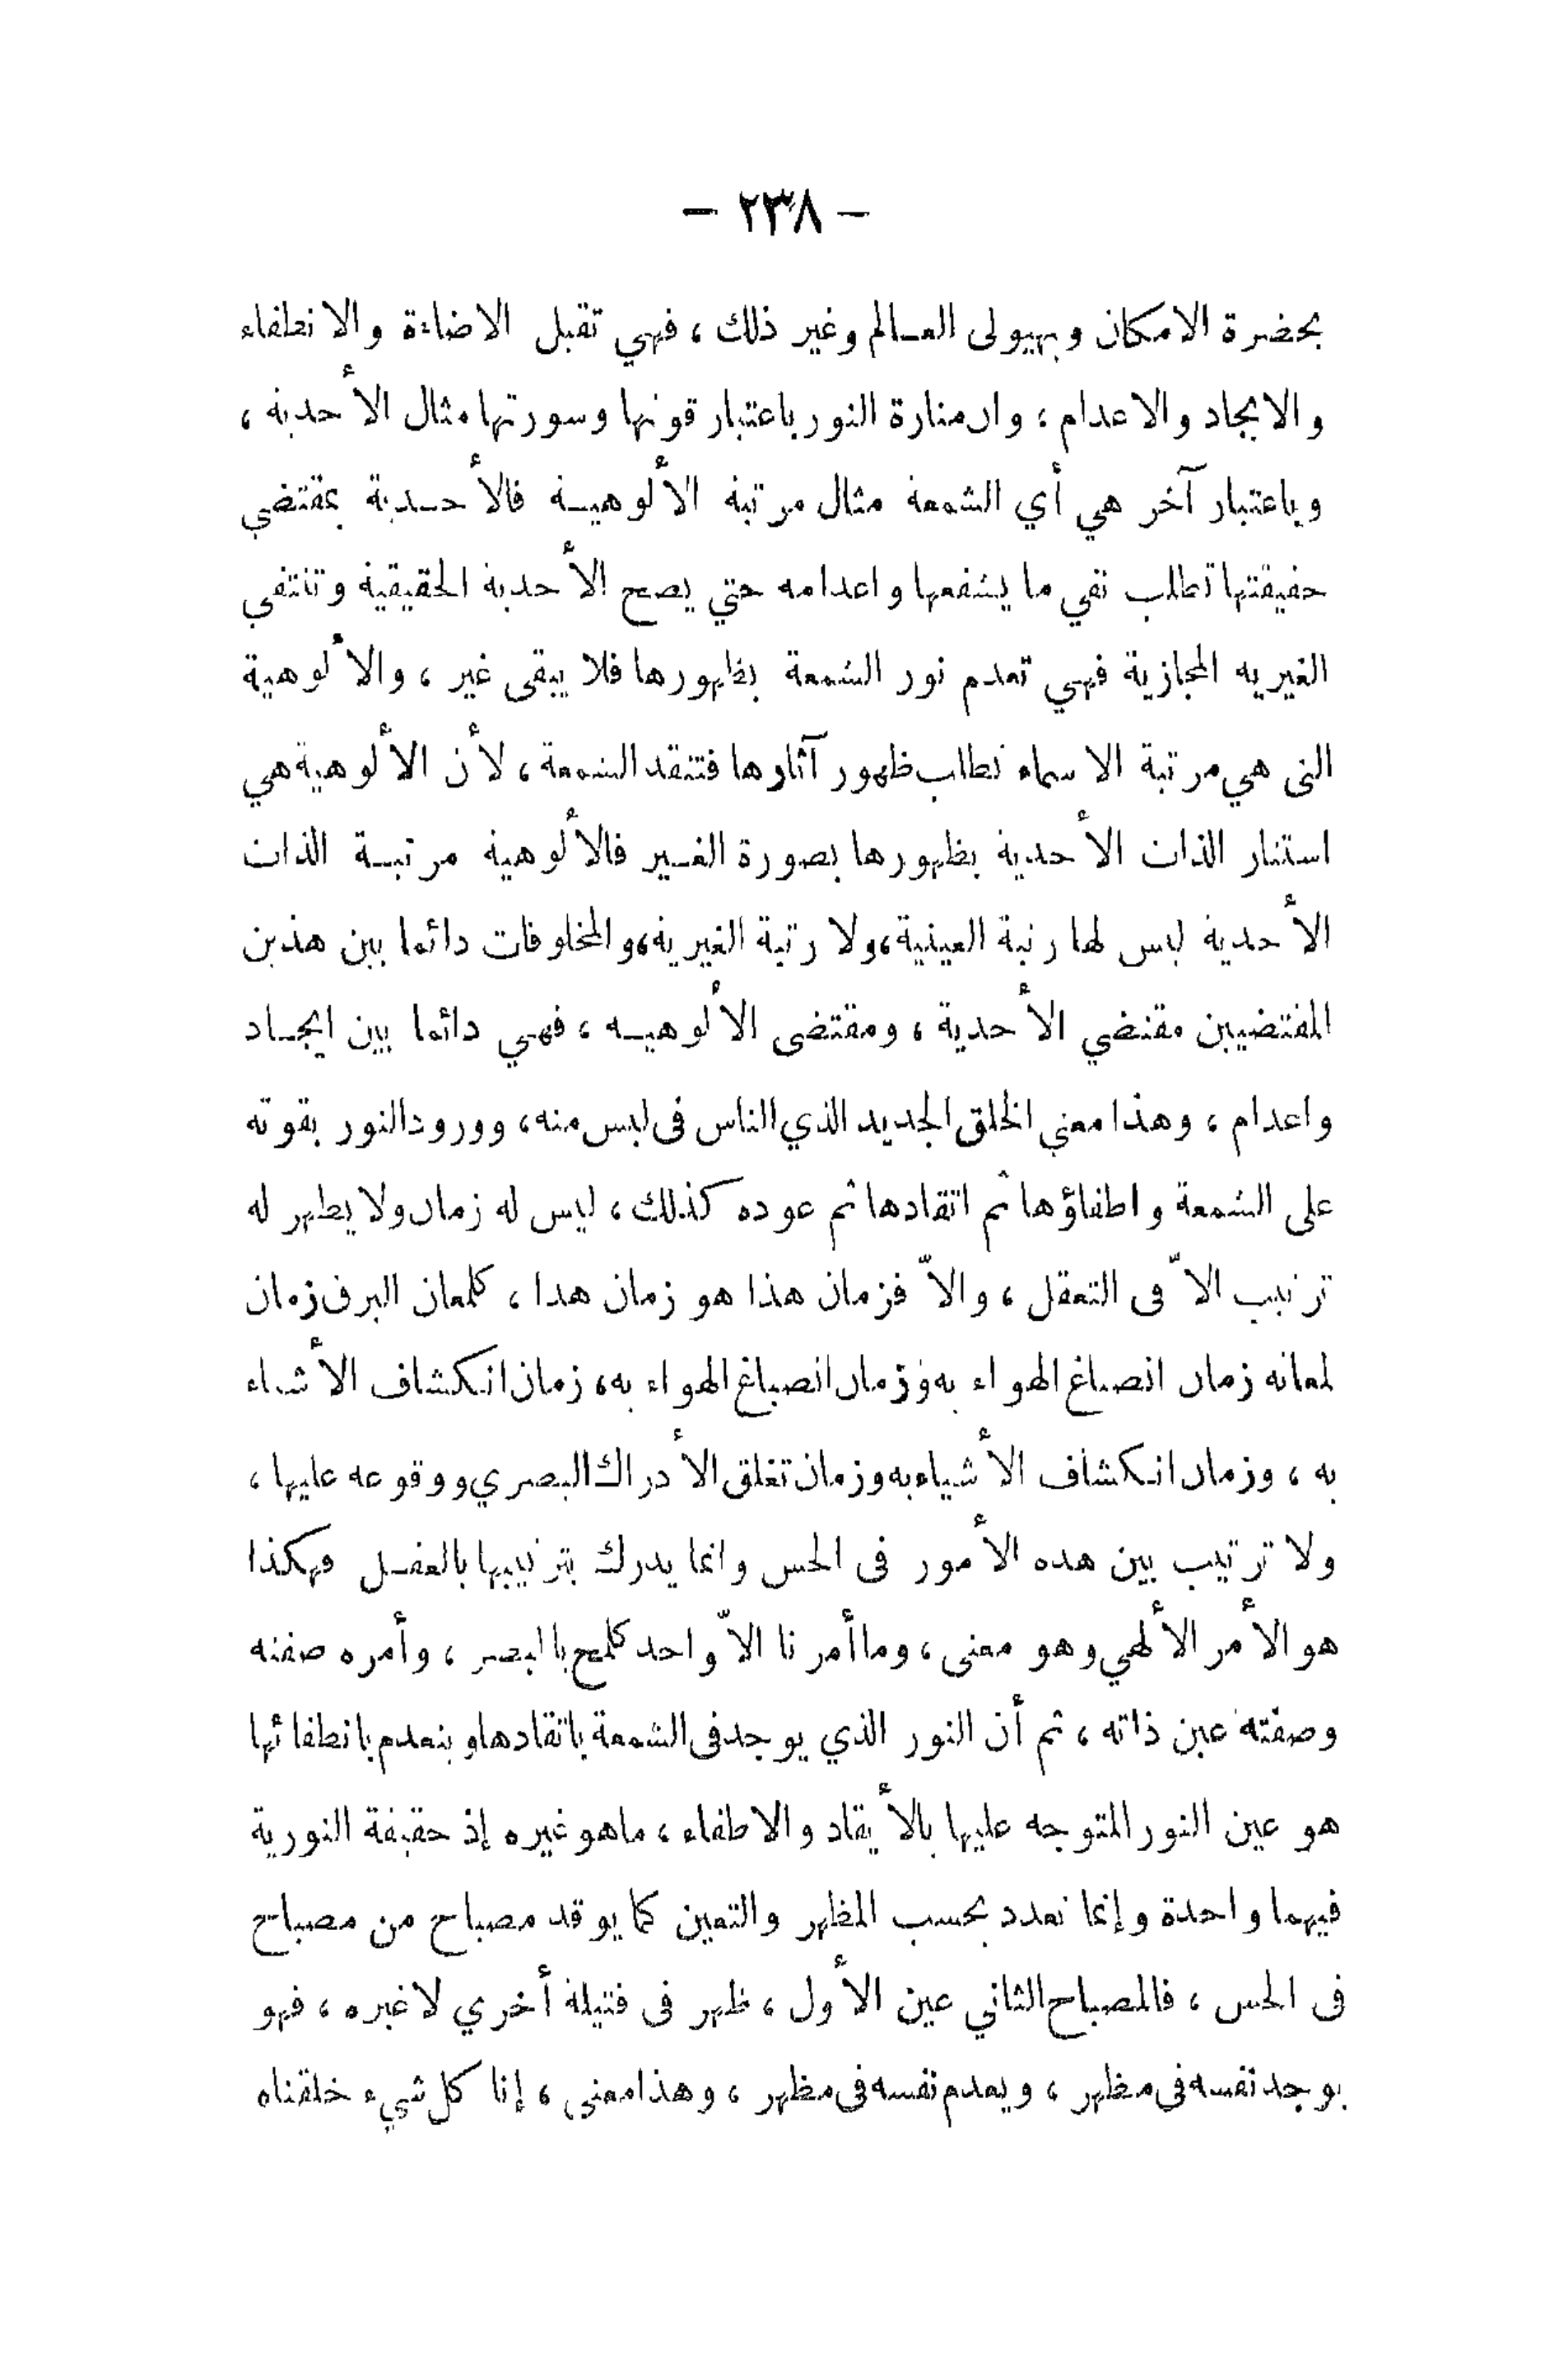 – ٢٣٨ –
بحضرة الامكان وبهيولى العالم وغير ذلك ، فهي تقبل الاضاءة والانطفاء
والايجاد والاعدام ، وان منارة النور باعتبار قوتها وسورتها مثال الأحدية ،
وباعتبار آخر هي أي الشمعة مثال مرتبة الألوهية فالأحدية بمقتضى
حقيقتها تطلب نفي ما يشفعها واعدامه حتي يصح الأحدية الحقيقية وتنتفي
الغيريه المجازية فهي تعدم نور الشمعة بظهورها فلا يبقى غير ، والألوهية
التى هي مرتبة الاسماء تطلب ظهور آثارها فتتقد الشمعة ، لأن الألوهية هي
استتار الذات الأحدية بظهورها بصورة الغير فالألوهية مرتبة الذات
الأحدية ليس لها رتبة العينية ، ولا رتبة الغيرية ، والمخلوقات دائما بين هذين
المقتضيين مقتضي الأحدية ، ومقتضى الألوهيه ، فهي دائما بين ايجاد
واعدام ، وهذا معني الخلق الجديد الذي الناس فى لبس منه ، وورود النور بقوته
على الشمعة واطفاؤها ثم اتقادها ثم عوده كذلك ، ليس له زمان ولا يظهر له
ترتيب الاّ فى التعقل ، والاّ فزمان هذا هو زمان هذا ، كلمعان البرق زمان
لمعانه زمان انصباغ الهواء به وزمان انصباغ الهواء به ، زمان انكشاف الأشياء
به ، وزمان انكشاف الأشياء به وزمان تعلق الأدراك البصري ووقوعه عليها ،
ولا ترتيب بين هذه الأمور فى الحس وانما يدرك بترتيبها بالعقل فهكذا
هو الأمر الألهي وهو معنى ، وما أمرنا الاّ واحد كلمح باالبصر ، وأمره صفته
وصفته عين ذاته ، ثم أن النور الذي يوجد فى الشمعة باتقادها وينعدم بانطفائها
هو عين النور المتوجه عليها بالأيقاد والاطفاء ، ماهو غيره إذ حقيقة النورية
فيهما واحدة وإنما تعدد بحسب المظهر والتعين كما يوقد مصباح من مصباح
فى الحس ، فالمصباح الثاني عين الأول ، ظهر فى فتيلة أخري لا غيره ، فهو
يوجد نفسه فى مظهر ، ويعدم نفسه فى مظهر ، وهذا معنى ، إنا كل شيء خلقناه